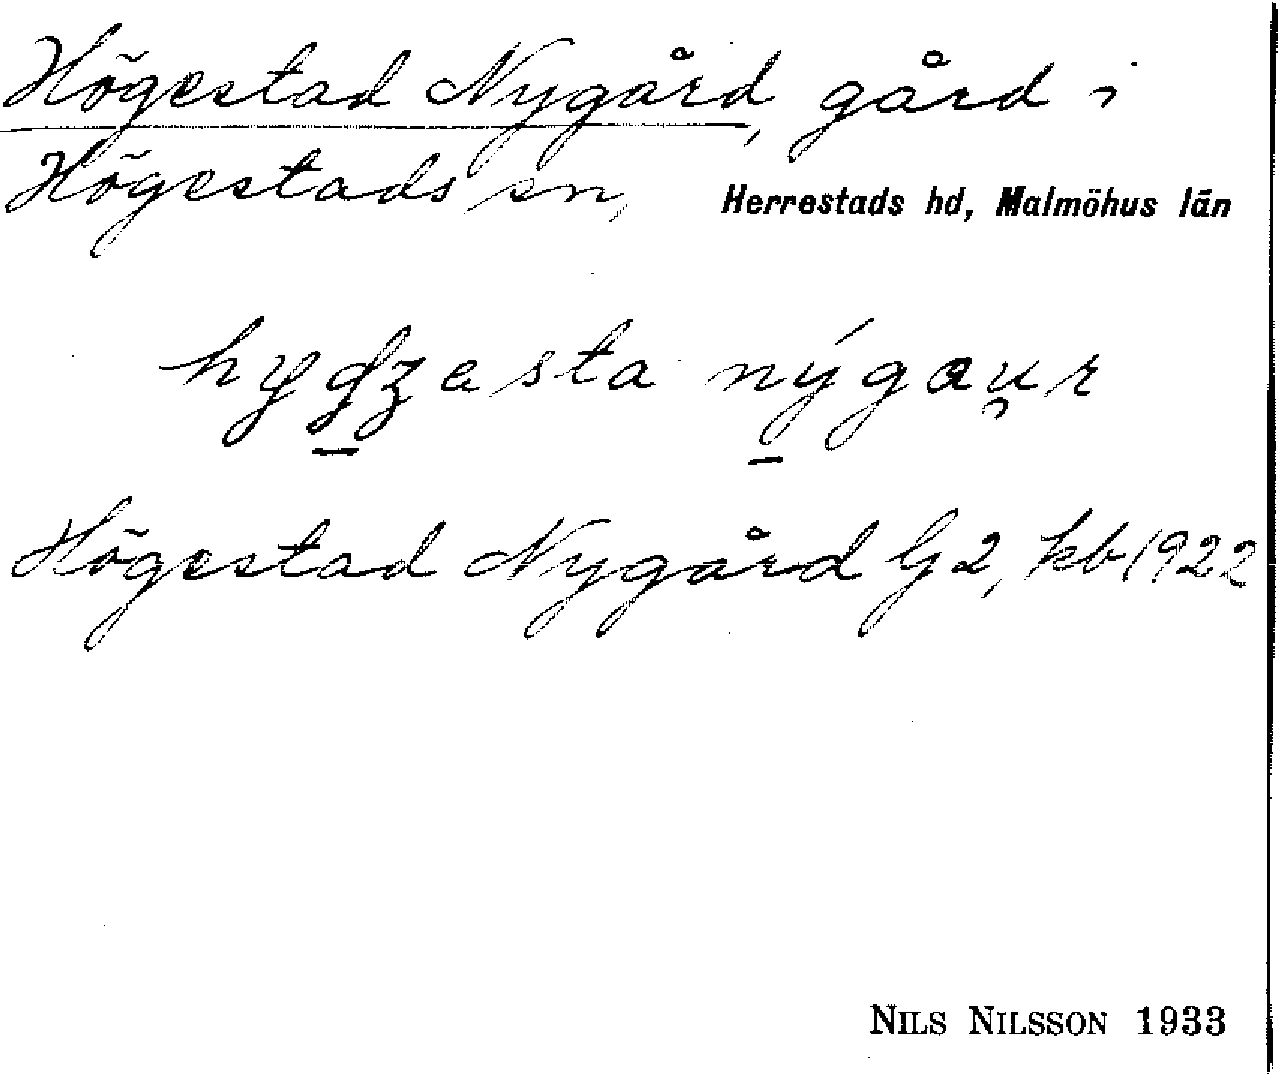 Högestad Nygård, gård i
Högestads sn, Herrestads hd, Malmöhus län
nýgau̯r
Högestad Nygård G 2, kb 1922
NILS NILSSON 1933